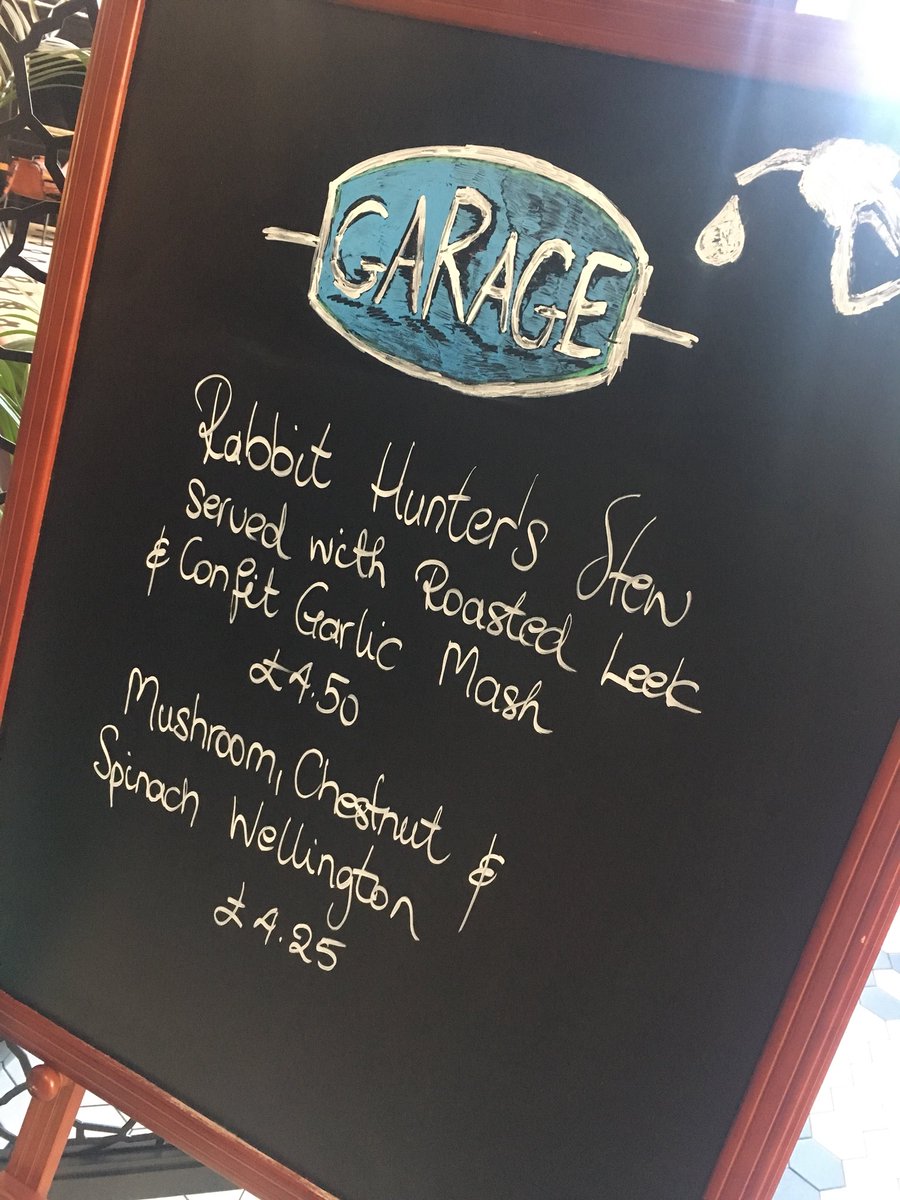 GARAGE
Rabbit Hunter's Stew
served with Roasted Leek
& Confit Garlic Mash
£4.50
Mushroom, Chestnut &
Spinach Wellington
£4.25